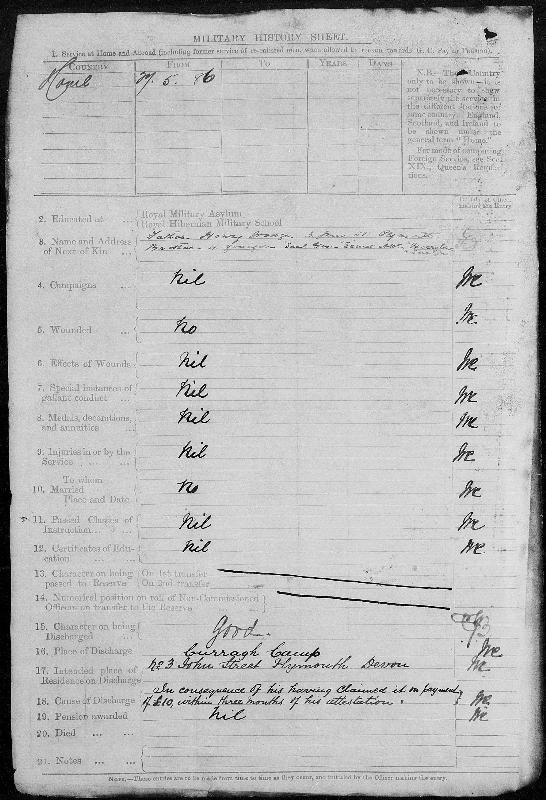 MILITARY HISTORY SHEET.
1. Service at Home and Abroad (including former service of re-enlisted men, when allowed to reckon towards G. C. Pay or Pension).
COUNTRY FROM TO YEARS DAYS
Home 5. 86
N.B.—The Country
only to be shown
necessary to show
separately the service in
the different
same country. England,
Scotland, and Ireland to
be shown under the
general term "Home."
For mode of computing
Foreign Service, see Sec.
XIX., Queen's Regula-
tions.
Initials of Officer
making the Entry
2. Educated at ... Royal Military Asylum
Royal Hibernian Military School
3. Name and Address
of Next of Kin ... Father Henry
Brother
4. Campaigns ... Nil
5. Wounded ... No
6. Effects of Wounds Nil
7. Special instances of
gallant conduct ... Nil
8. Medals, decorations,
and annuities ... Nil
9. Injuries in or by the
Service ... ... Nil
10. Married To whom
Place and Date No
11. Passed Classes of
Instruction... ... Nil
12. Certificates of Edu-
cation ... Nil
13. Character on being On 1st transfer
passed to Reserve On 2nd transfer
14. Numerical position on roll of Non-Commissioned
Officers on transfer to the Reserve
15. Character on being
Discharged ... Good.
16. Place of Discharge Curragh Camp
17. Intended place of
Residence on Discharge No 3 John Street Plymouth Devon
18. Cause of Discharge In consequence of his having claimed it on payment
of £10, within three months of his attestation.
19. Pension awarded Nil
20. Died ... ...
21. Notes ... ...
NOTE.—These entries are to be made from time to time as they occur, and initialed by the Officer making the entry.